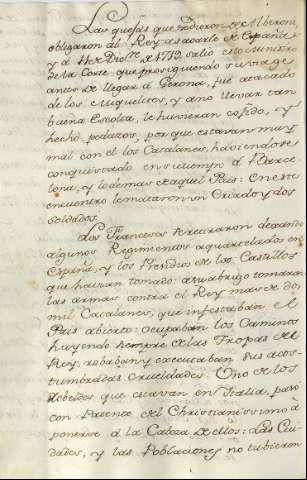 Las quejas que se dieron de Alberoni
obligaron al Rey a sacarle de España
y à 4 de Dic.re de 1719 salio este Ministro
de la Corte, que prosiguiendo su viage
antes de llegar à Gerona, fue atacado
de los miqueletes, y a no llevar tan
buena Escolta, le huvieran cogido, y
hecho pedazos, por que estavan muy
mal con el los Catalanes, haviendose
conquistado en su tiempo à Barce
lona, y lo demas de aquel Pais: En este
encuentro le mataron un Criado y dos
soldados.
Los Franceses se retiraron dexando
algunos Regimientos aquartelados en
España, y los Presidios de los Castillos
que havian tomado: à su abrigo tomaron
las armas contra el Rey mas de dos
mil Catalanes, que infestaban el
Pais abierto: ocupaban los Caminos
huyendo siempre de las Tropas del
Rey, robaban y executaban sus acos-
tumbradas crueldades. Uno de los
rebeldes que estava en Italia, pasò
con Patente del Christianissimo à
ponerse à la Cabeza de ellos: Las Ciu-
dades, y las Poblaciones no tubieron